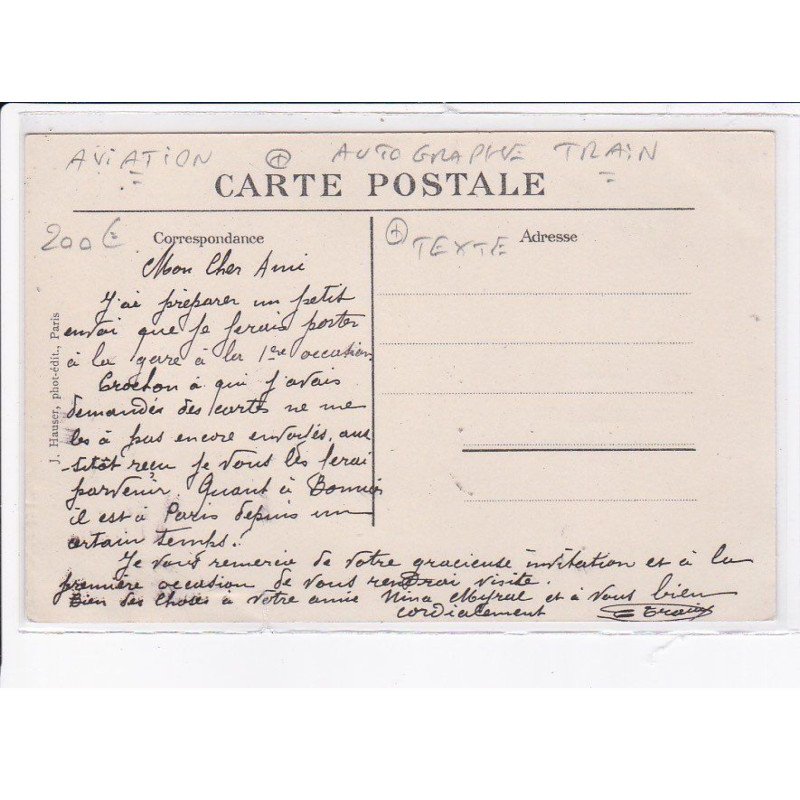 AVIATION + AUTOGRAPHE TRAIN
CARTE POSTALE
200€
Correspondance
+ TEXTE
Adresse
J. Hauser, phot-édit., Paris
Mon Cher Ami
J'ai préparer un petit
envoi que je ferais porter
à la gare à la 1ère occasion
Crochon à qui j'avais
demandés des cartes ne me
les à pas encore envoyés, aus
-sitôt reçu je vous lès ferai
parvenir. Quant à Bonnier
il est à Paris depuis un
certain temps.
Je vous remercie de votre gracieuse invitation et à la
première occasion de vous rendrai visite.
Bien des Choses à votre amie Nina Myral et à vous bien
cordialement E Train